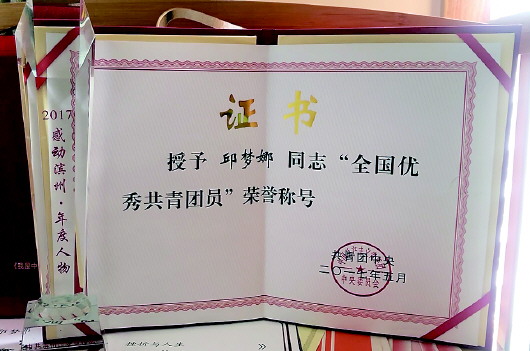 证书
授予 邱梦娜 同志“全国优
秀共青团员”荣誉称号
共青团中央
二〇一七年五月
中央委员会
2017
感动滨州·年度人物